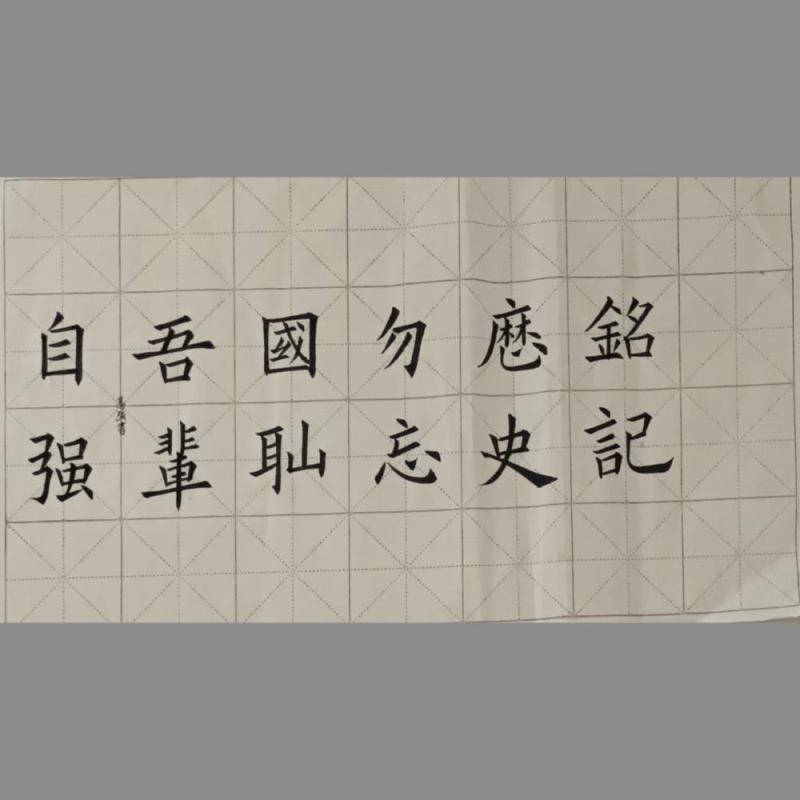 銘記
歷史
勿忘
國耻
吾輩
自强